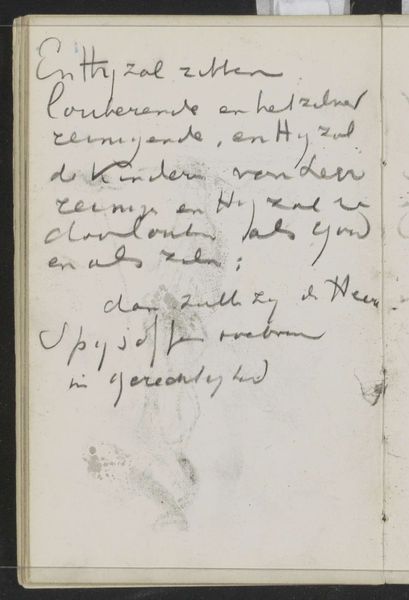 En Hy zal zitten
louterende en het zilver
reinigende, en Hy zal
de Kinderen van Levi
reinigen en Hy zal ze
doorlouteren als goud
en als zilver;
dan zullen zy de Heere
Spysoffer toebrengen
in gerechtigheid